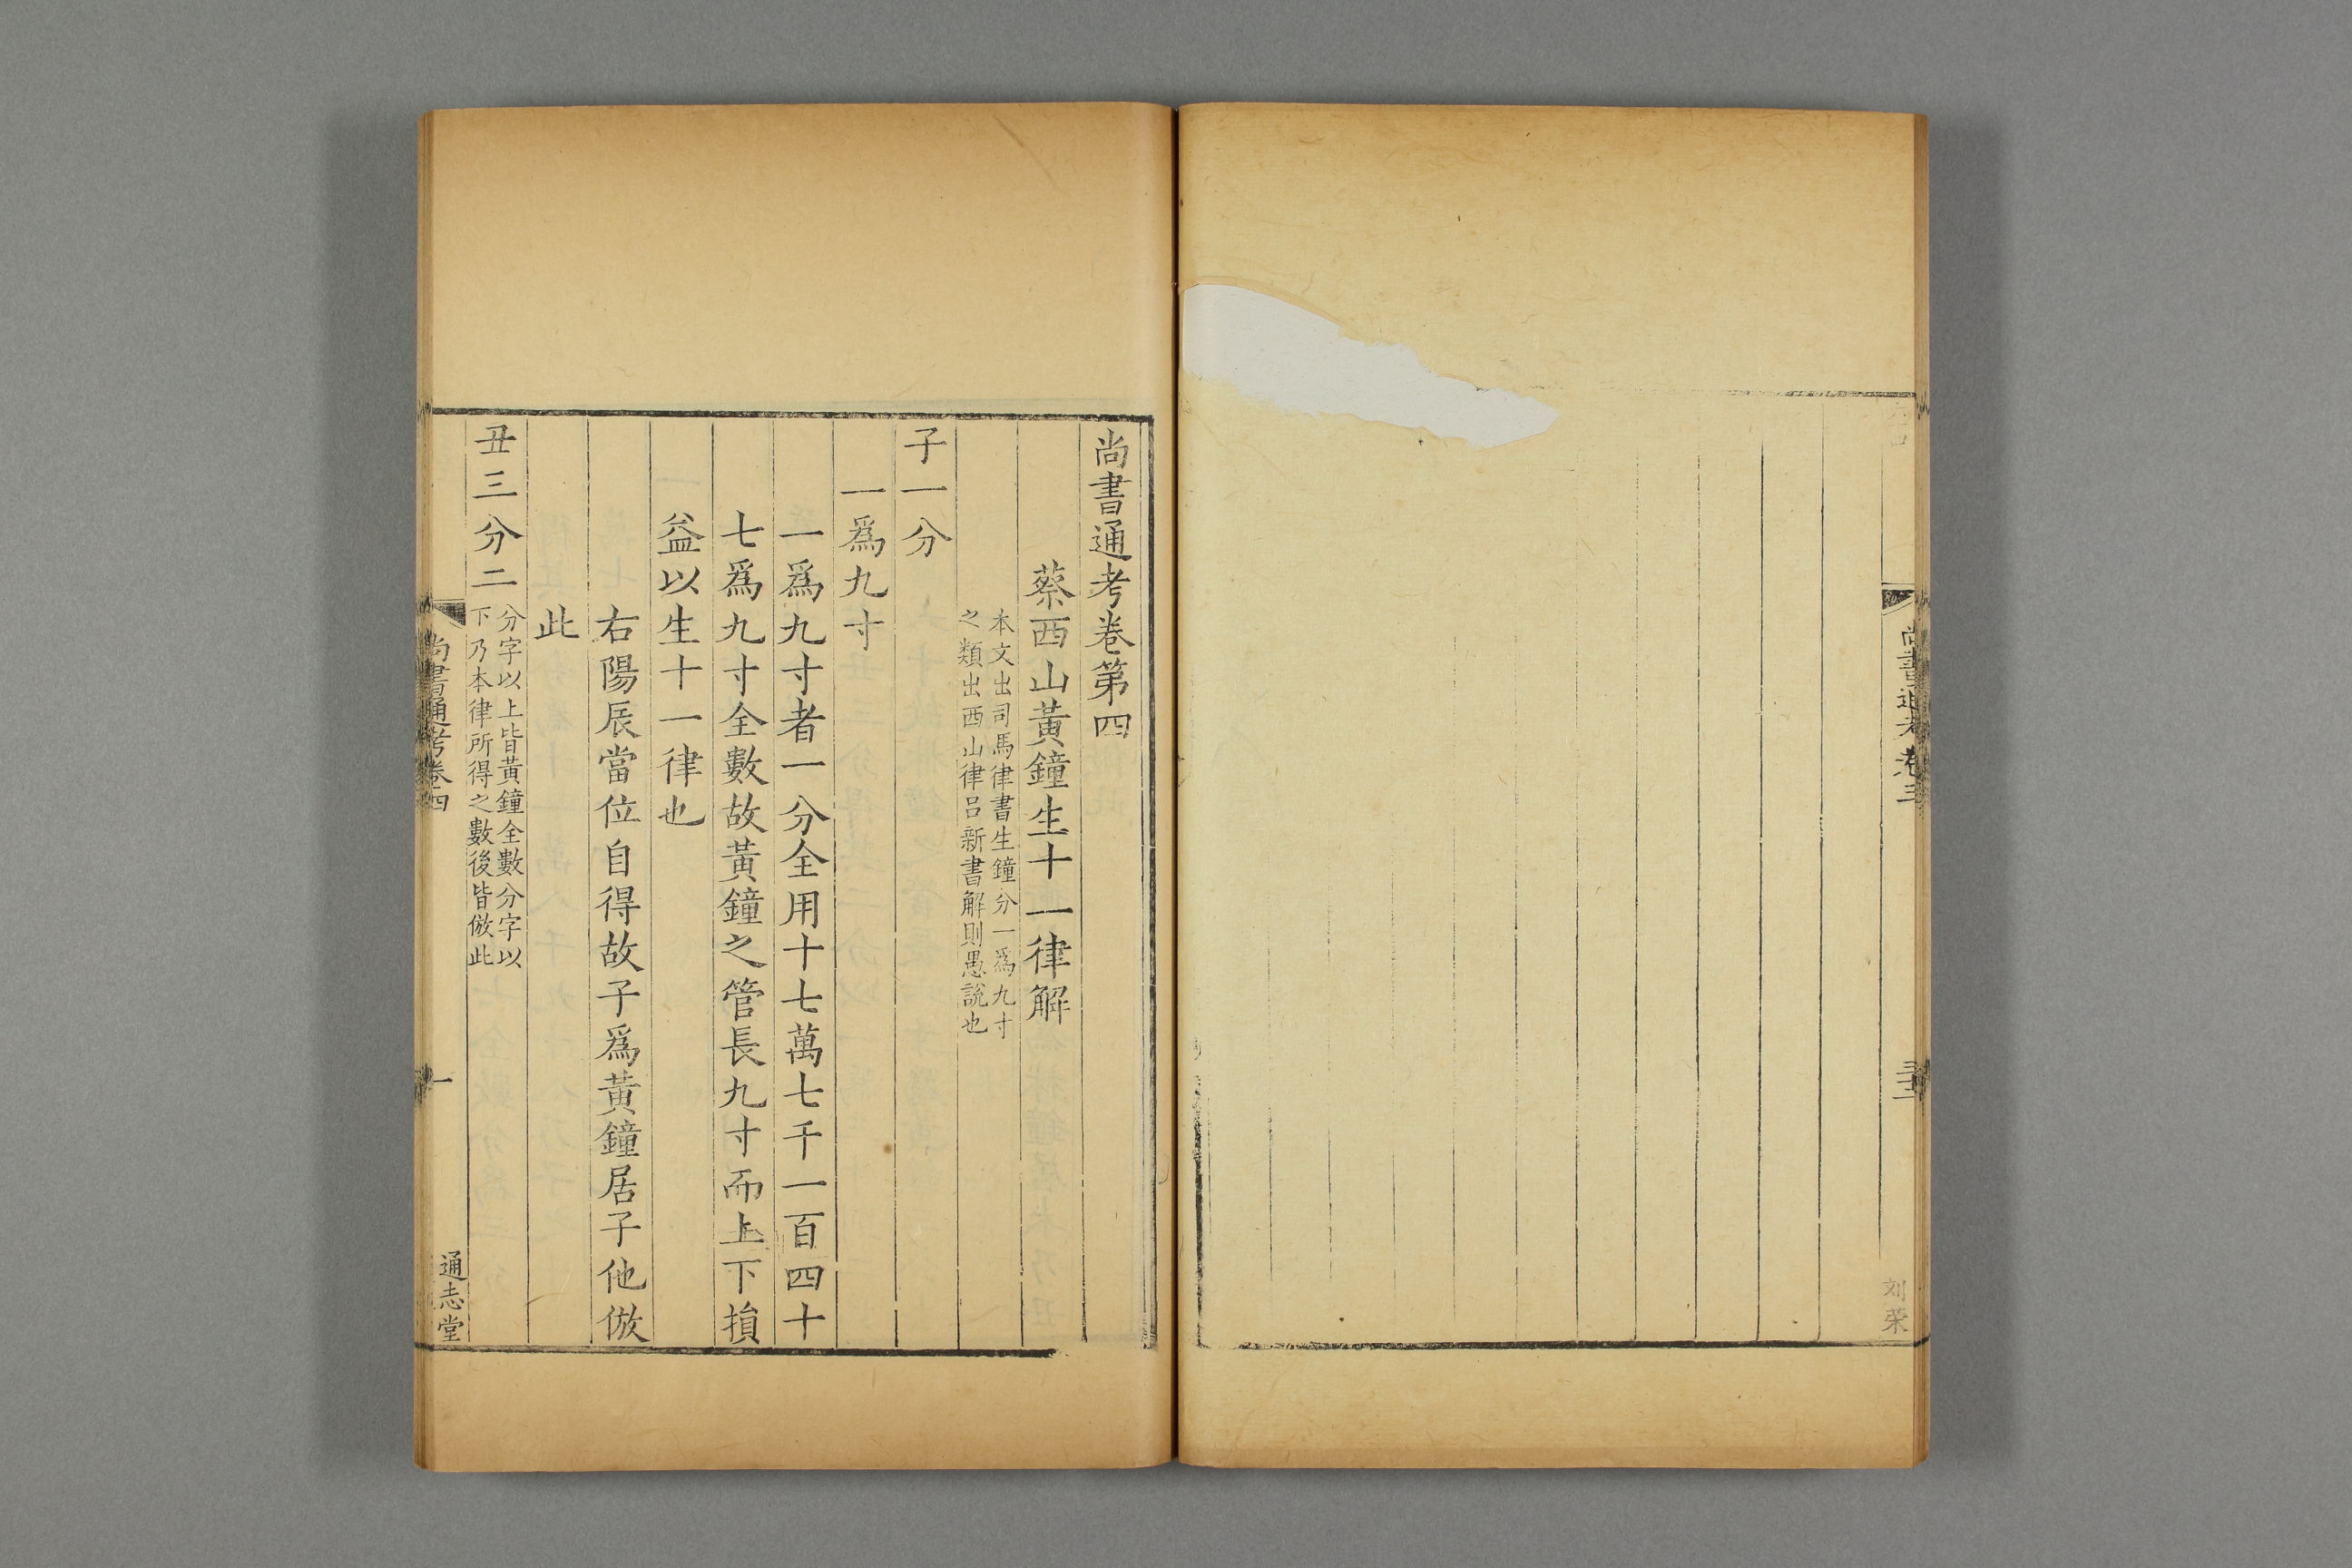 尚書通考卷三
三十二
刘荣
尚書通考卷第四
蔡西山黃鐘生十一律解
本文出司馬律書生鐘分一爲九寸
之類出西山律呂新書解則愚說也
子一分
一爲九寸
一爲九寸者一分全用十七萬七千一百四十
七爲九寸全數故黃鐘之管長九寸而上下損
益以生十一律也
右陽辰當位自得故子爲黃鐘居子他倣
此
丑三分二
分字以上皆黃鐘全數分字以
下乃本律所得之數後皆倣此
尚書通考卷四
一
通志堂